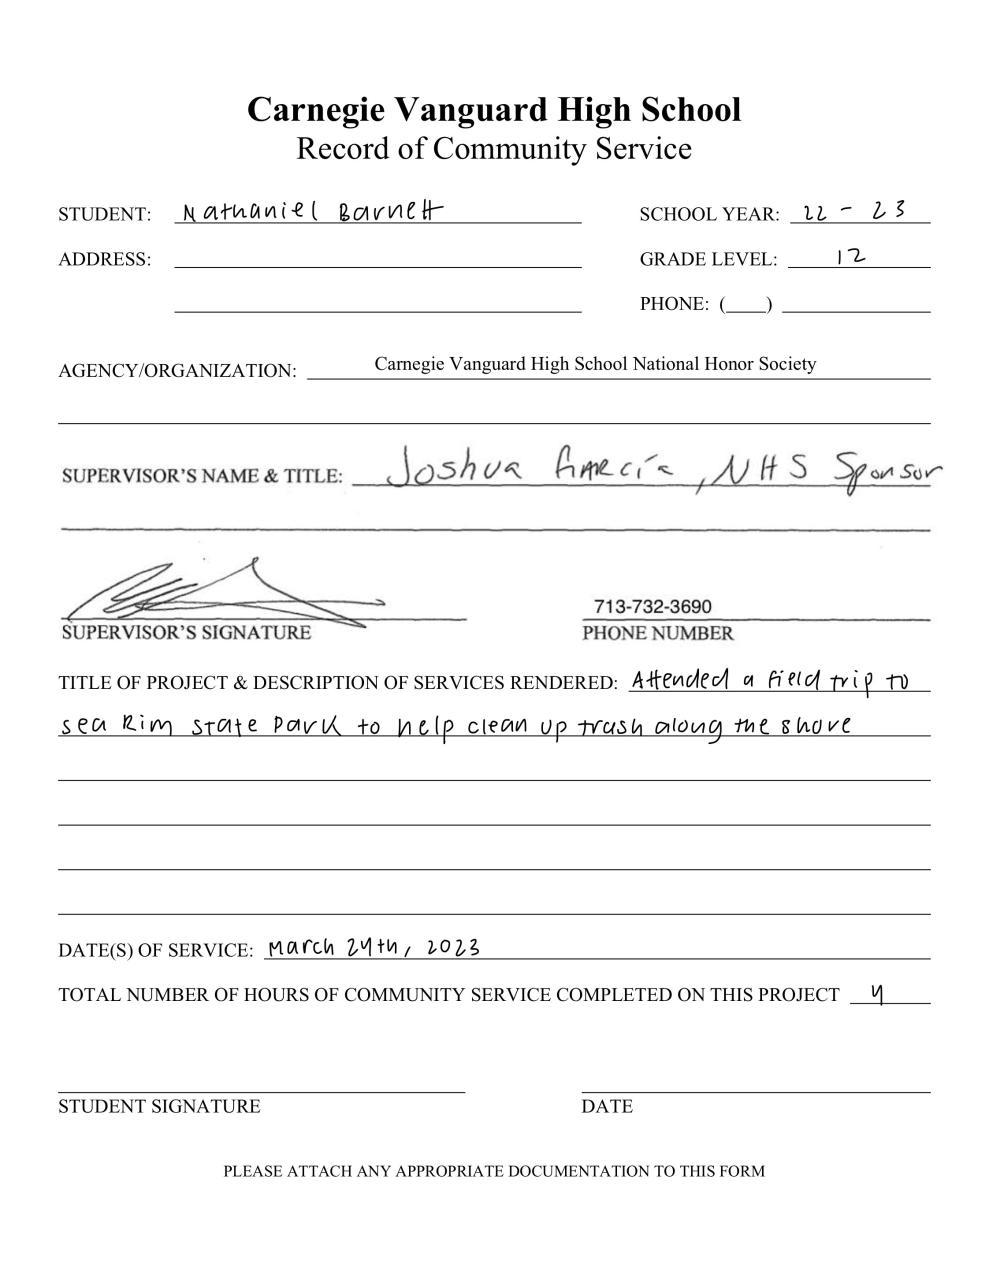 Carnegie Vanguard High School
Record of Community Service
STUDENT: Nathaniel Barnett SCHOOL YEAR: 22 - 23
ADDRESS: GRADE LEVEL: 12
PHONE: ( )
AGENCY/ORGANIZATION: Carnegie Vanguard High School National Honor Society
SUPERVISOR'S NAME & TITLE: Joshua Garcia, NHS Sponsor
713-732-3690
SUPERVISOR'S SIGNATURE PHONE NUMBER
TITLE OF PROJECT & DESCRIPTION OF SERVICES RENDERED: Attended a field trip to
sea Rim State Park to help clean up trash along the shore
DATE(S) OF SERVICE: March 24th, 2023
TOTAL NUMBER OF HOURS OF COMMUNITY SERVICE COMPLETED ON THIS PROJECT 4
STUDENT SIGNATURE DATE
PLEASE ATTACH ANY APPROPRIATE DOCUMENTATION TO THIS FORM